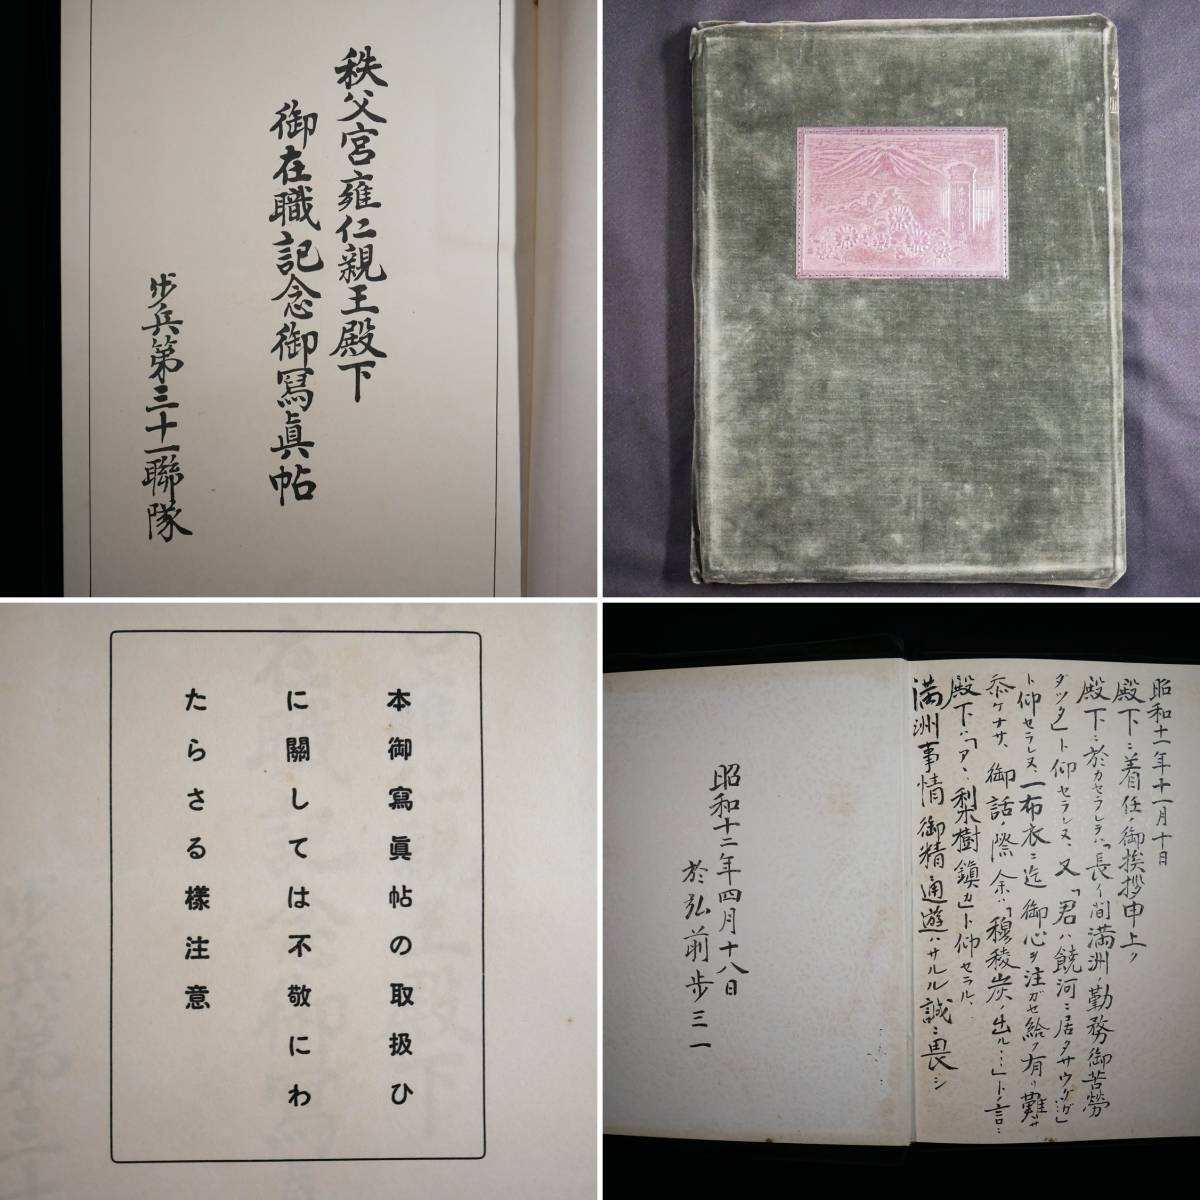 秩父宮雍仁親王殿下
御在職記念御冩眞帖
歩兵第三十一聯隊
本御寫眞帖の取扱ひ
に關しては不敬にわ
たらさる樣注意
昭和十一年十一月十日
殿下ニ着任ノ御挨拶申上ク
殿下ニ於カセラレテハ「長イ間満洲ノ勤務御苦勞
ダツタ」ト仰セラレ又、又「君ハ饒河ニ居タサウダガ」
ト仰セラレ又、一布衣ニ迄御心ヲ注ガセ給フ有リ難サ
忝ケナサ、御話ノ際余ハ「穆稜炭ノ出ル…」ト言ニ
殿下ハ「アヽ梨樹鎮カ」ト仰セラル、
満洲事情御精通遊ハサルル誠ニ畏シ
昭和十二年四月十八日
於弘前歩三一